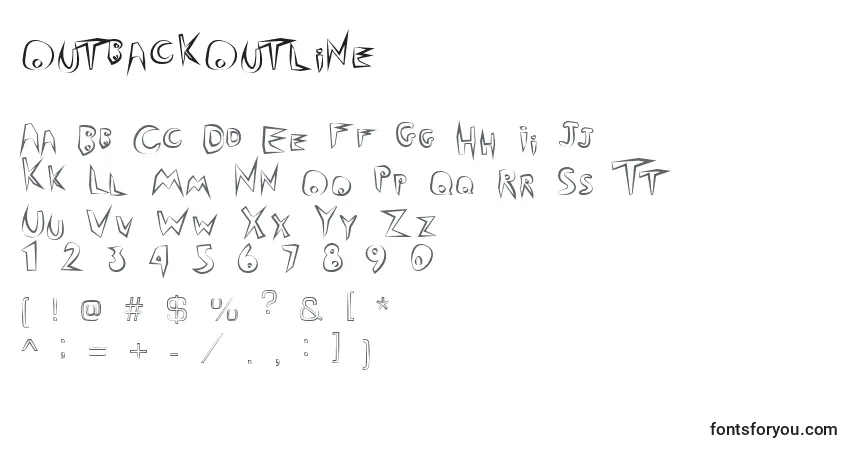 OUTBACKOUTLiNe
Aa Bb Cc Dd Ee Ff Gg Hh Ii Jj
Kk Ll Mm Nn Oo Pp Qq Rr Ss Tt
Uu Vv Ww Xx Yy Zz
1 2 3 4 5 6 7 8 9 0
( ! @ # $ % ? & [ *
^ ; = + - / . , : ] )
fontsforyou.com